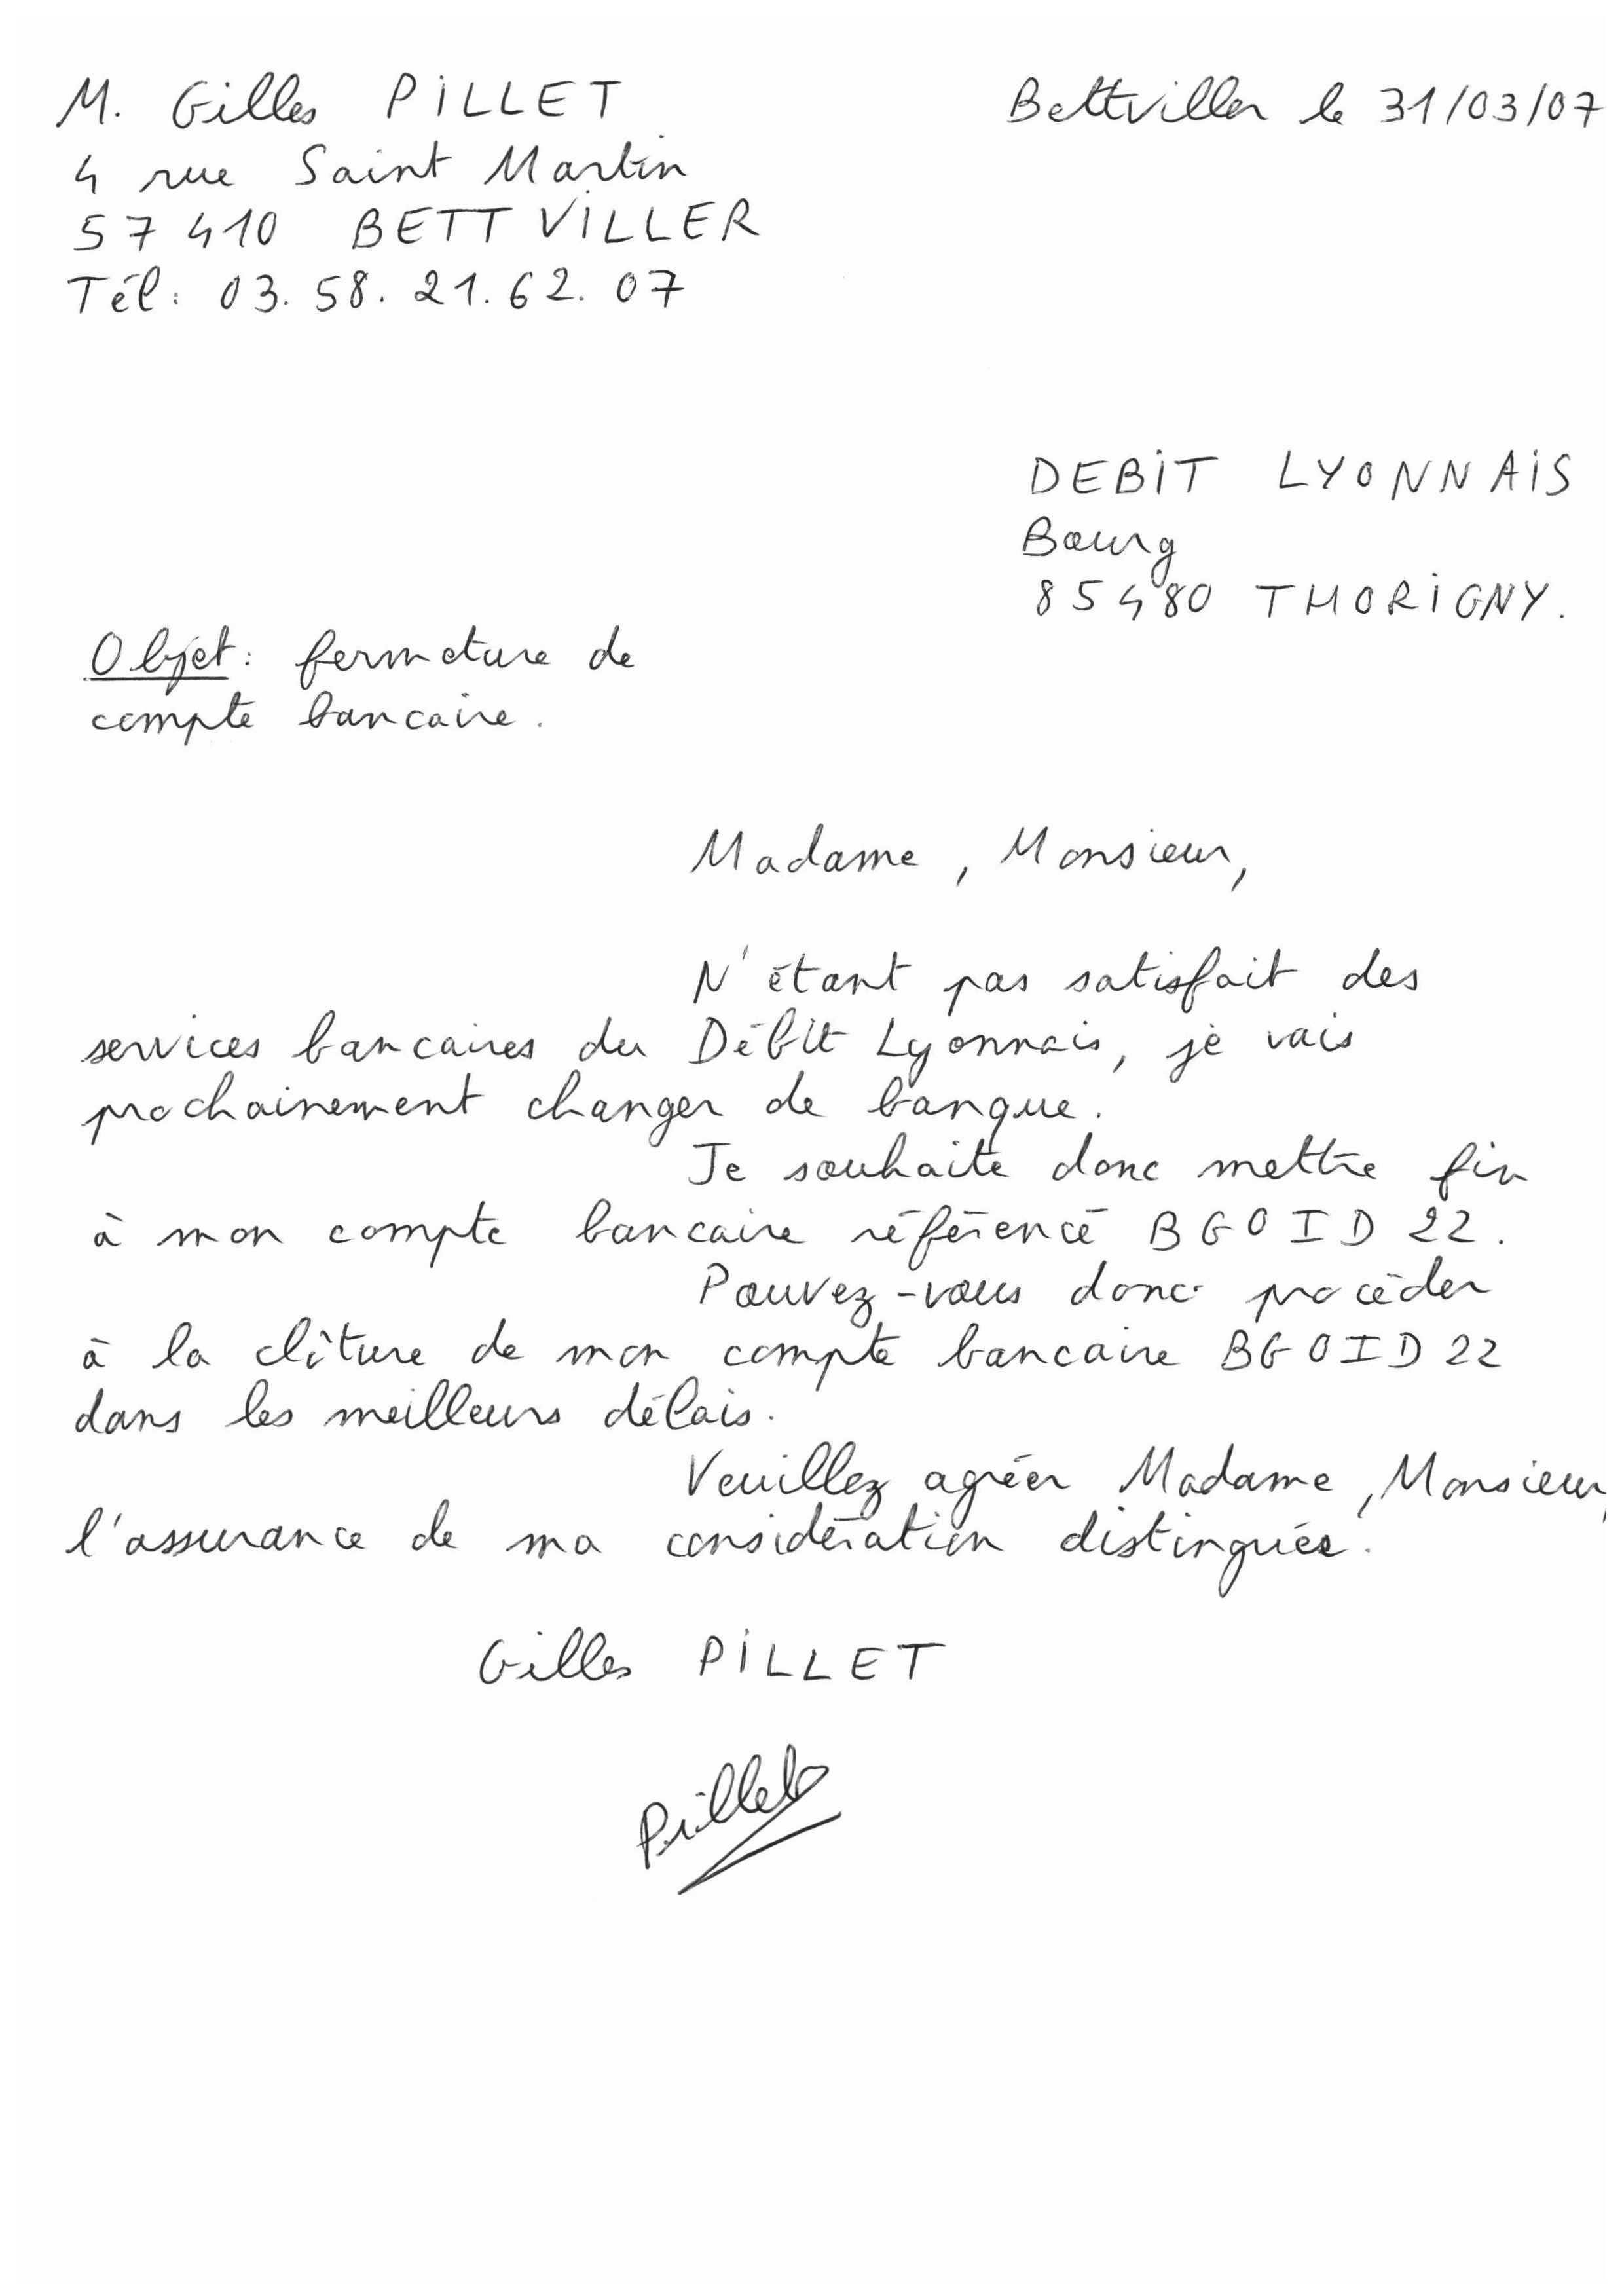 M. Gilles PILLET
Bettviller le 31/03/07
4 rue Saint Martin
57410 BETTVILLER
Tél: 03.58.21.62.07
DEBIT LYONNAIS
Bourg
85480 THORIGNY.
Objet: fermeture de
compte bancaire.
Madame, Monsieur,
N'étant pas satisfait des
services bancaires du Débit Lyonnais, je vais
prochainement changer de banque.
Je souhaite donc mettre fin
à mon compte bancaire référencé BGOID22.
Pouvez-vous donc procéder
à la clôture de mon compte bancaire BGOID22
dans les meilleurs délais.
Veuillez agréer Madame, Monsieur,
l'assurance de ma considération distinguée.
Gilles PILLET
Pillet